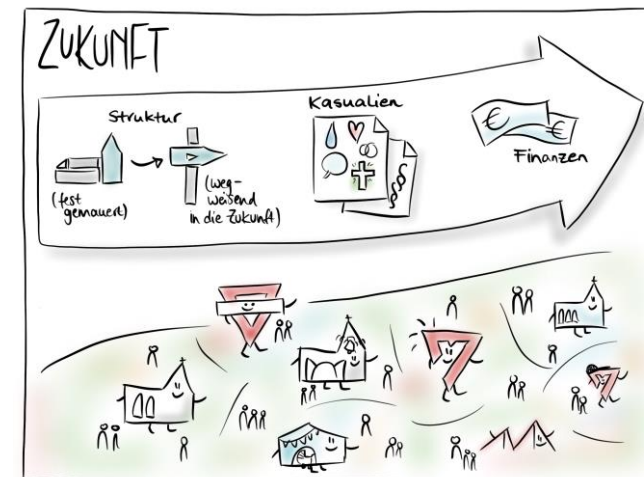 ZUKUNFT
Struktur
(fest
gemauert)
(weg-
weisend
in die Zukunft)
Kasualien
§
§
€
€
Finanzen